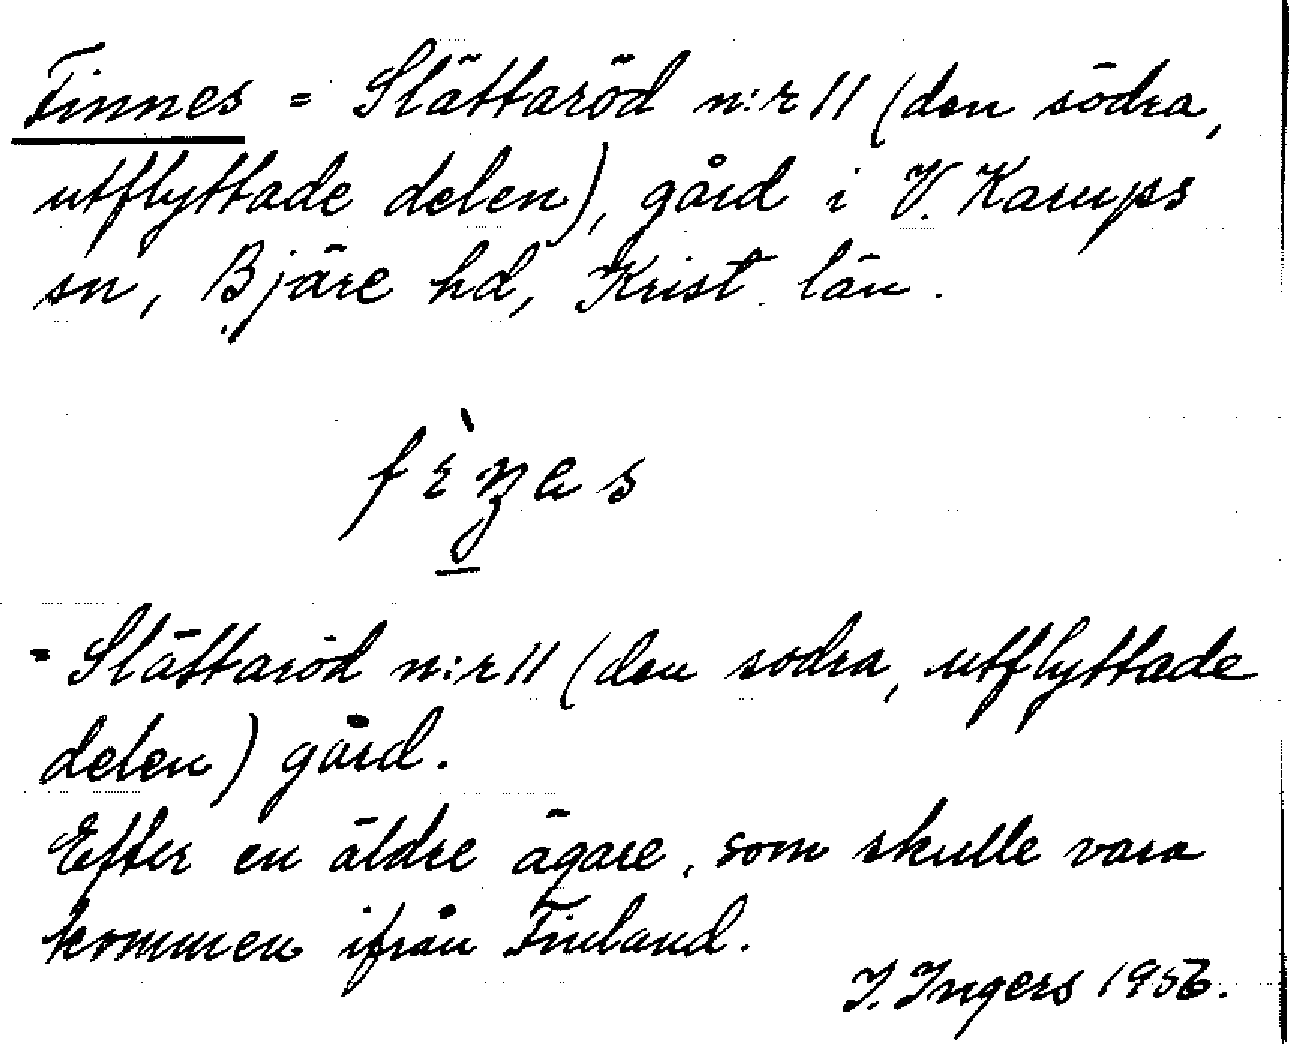 Finnes = Slättaröd n:r 11 (den södra,
utflyttade delen), gård i V. Karups
sn, Bjäre hd, Krist. län.
= Slättaröd n:r 11 (den södra, utflyttade
delen) gård.
Efter en äldre ägare, som skulle vara
kommen ifrån Finland.
I. Ingers 1956.